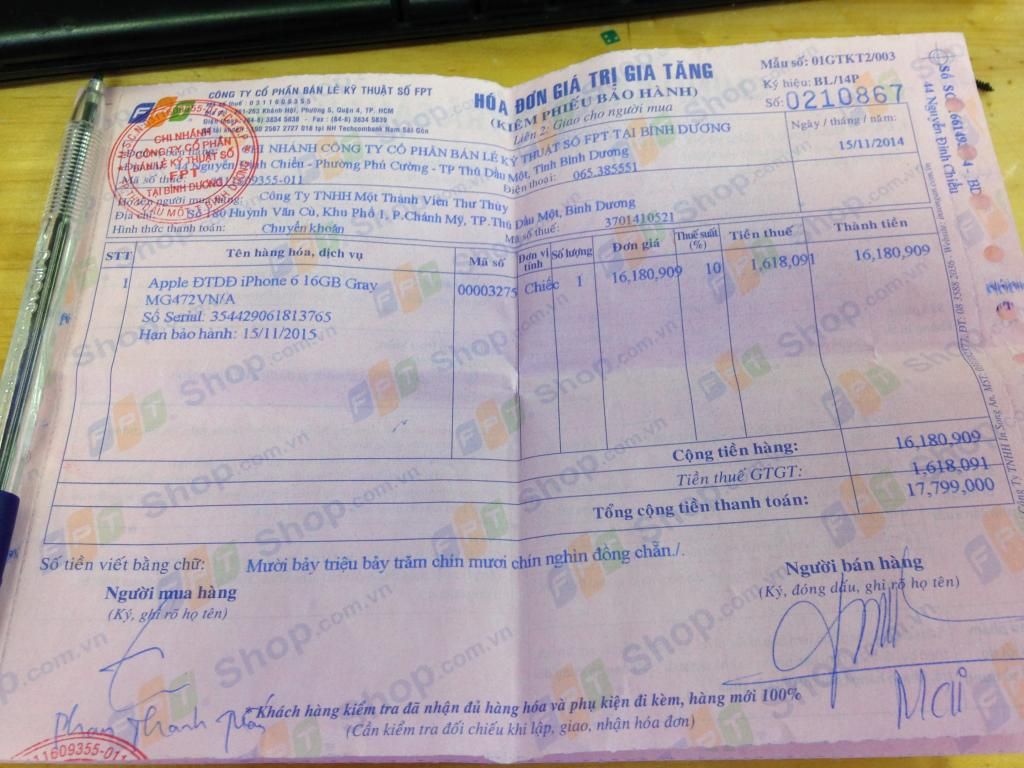 FPT Shop.com.vn
CÔNG TY CỔ PHẦN BÁN LẺ KỸ THUẬT SỐ FPT
Mã số thuế : 0311609355
261-263 Khánh Hội, Phường 5, Quận 4, TP. HCM
Điện thoại: (84-8) 3834 5838 - Fax : (84-8) 3834 5839
tại NH Techcombank Nam Sài Gòn
HÓA ĐƠN GIÁ TRỊ GIA TĂNG
(KIÊM PHIẾU BẢO HÀNH)
Liên 2: Giao cho người mua
Mẫu số: 01GTKT2/003
Ký hiệu: BL/14P
Số: 0210867
Ngày / tháng / năm:
15/11/2014
CHI NHÁNH
CÔNG TY CỔ PHẦN
BÁN LẺ KỸ THUẬT SỐ
FPT
TẠI BÌNH DƯƠNG
CHI NHÁNH CÔNG TY CỔ PHẦN BÁN LẺ KỸ THUẬT SỐ FPT TẠI BÌNH DƯƠNG
44 Nguyễn Đình Chiểu - Phường Phú Cường - TP Thủ Dầu Một, Tỉnh Bình Dương
Mã số thuế: 0311609355-011 Điện thoại: 065.385551
Họ tên người mua hàng: Công Ty TNHH Một Thành Viên Thư Thủy
Địa chỉ: Số 180 Huỳnh Văn Cù, Khu Phố 1, P.Chánh Mỹ, TP.Thủ Dầu Một, Bình Dương
Hình thức thanh toán: Chuyển khoản Mã số thuế: 3701410521
STT Tên hàng hóa, dịch vụ Mã số Đơn vị tính Số lượng Đơn giá Thuế suất (%) Tiền thuế Thành tiền
1 Apple ĐTDĐ iPhone 6 16GB Gray 00003275 Chiếc 1 16,180,909 10 1,618,091 16,180,909
MG472VN/A
Số Serial: 354429061813765
Hạn bảo hành: 15/11/2015
Cộng tiền hàng: 16,180,909
Tiền thuế GTGT: 1,618,091
Tổng cộng tiền thanh toán: 17,799,000
Số tiền viết bằng chữ: Mười bảy triệu bảy trăm chín mươi chín nghìn đồng chẵn./.
Người mua hàng
(Ký, ghi rõ họ tên)
Người bán hàng
(Ký, đóng dấu, ghi rõ họ tên)
Phan Thanh
Mai
* Khách hàng kiểm tra đã nhận đủ hàng hóa và phụ kiện đi kèm, hàng mới 100%
(Cần kiểm tra đối chiếu khi lập, giao, nhận hóa đơn)
11609355-011
44 Nguyễn Đình Chiểu